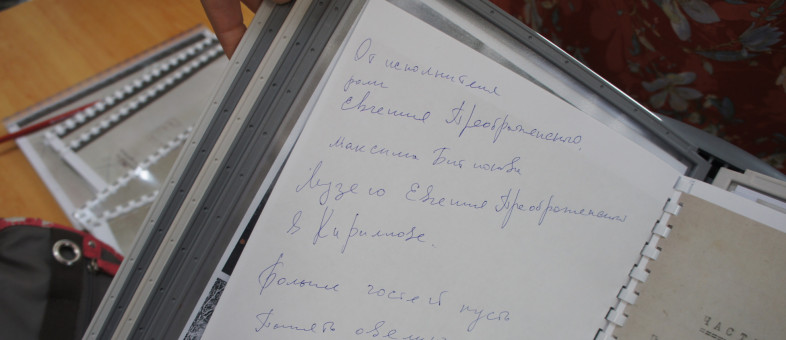 От исполнителя
роли
Евгения Преображенского
Максима Битюкова
Музею Евгения Преображенского
в Кириллове.
Больше гостей пусть
Память о
ЧАСТ